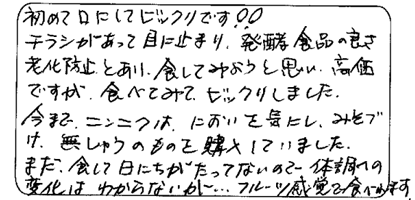 初めて口にしてビックリです!!
チラシがあって目に止まり、発酵食品の良さ
老化防止とあり、食してみようと思い、高価
ですが、食べてみて、ビックリしました。
今まで、ニンニクは、においを気にし、みそづ
け、無しゅうのものを購入していました。
まだ、食して日にちがたってないので体調への
変化はわからないが…フルーツ感覚で食べれます。